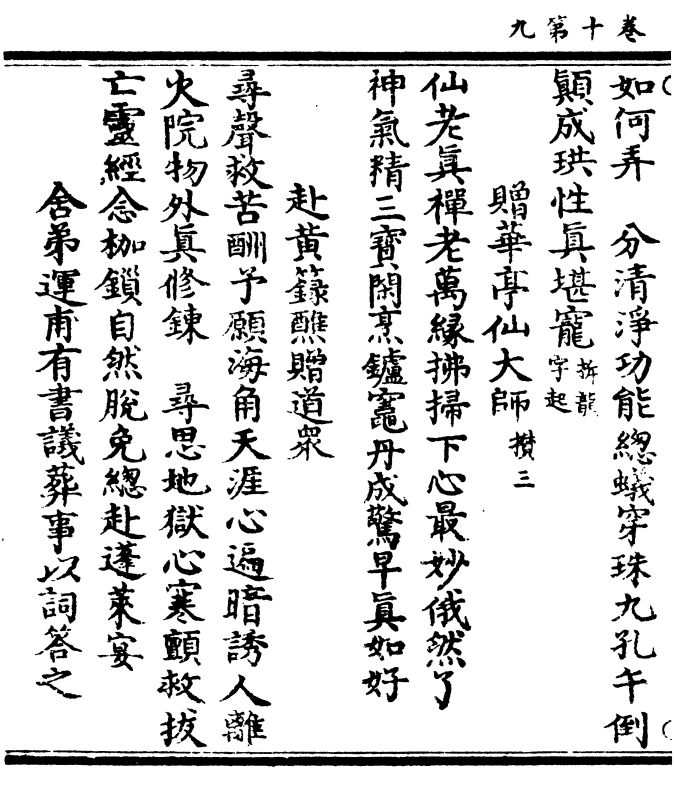 卷十第九
如何弄　分清淨功能總蟻穿珠九孔午倒
顛成珙性真堪寵拆龍字起
贈華亭仙大師攅三
仙老眞禪老萬緣拂掃下心最妙俄然了
神氣精三寶閑烹鑪竈丹成驚早眞如好
赴黃籙醮贈道衆
尋聲救苦酬予願海角天涯心遍暗誘人離
火院物外眞修鍊　尋思地獄心寒顫救拔
亡靈經念枷鎖自然脫免總赴蓬萊宴
舍弟運甫有書議葬事以詞答之